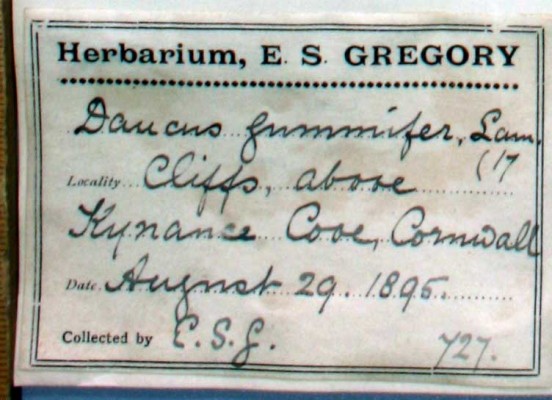 Herbarium, E. S. GREGORY
Daucus gummifer, Lam.
(17
Locality Cliffs, above
Kynance Cove, Cornwall
Date August 29. 1895.
Collected by E.S.G.
727.